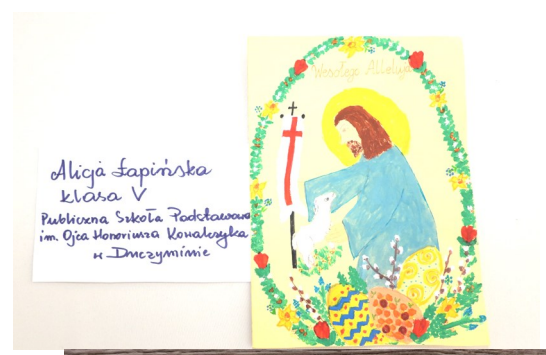 Alicja Łapińska
klasa V
Publiczna Szkoła Podstawowa
im. Ojca Honoriusza Kowalczyka
w Duczyminie
Wesołego Alleluja